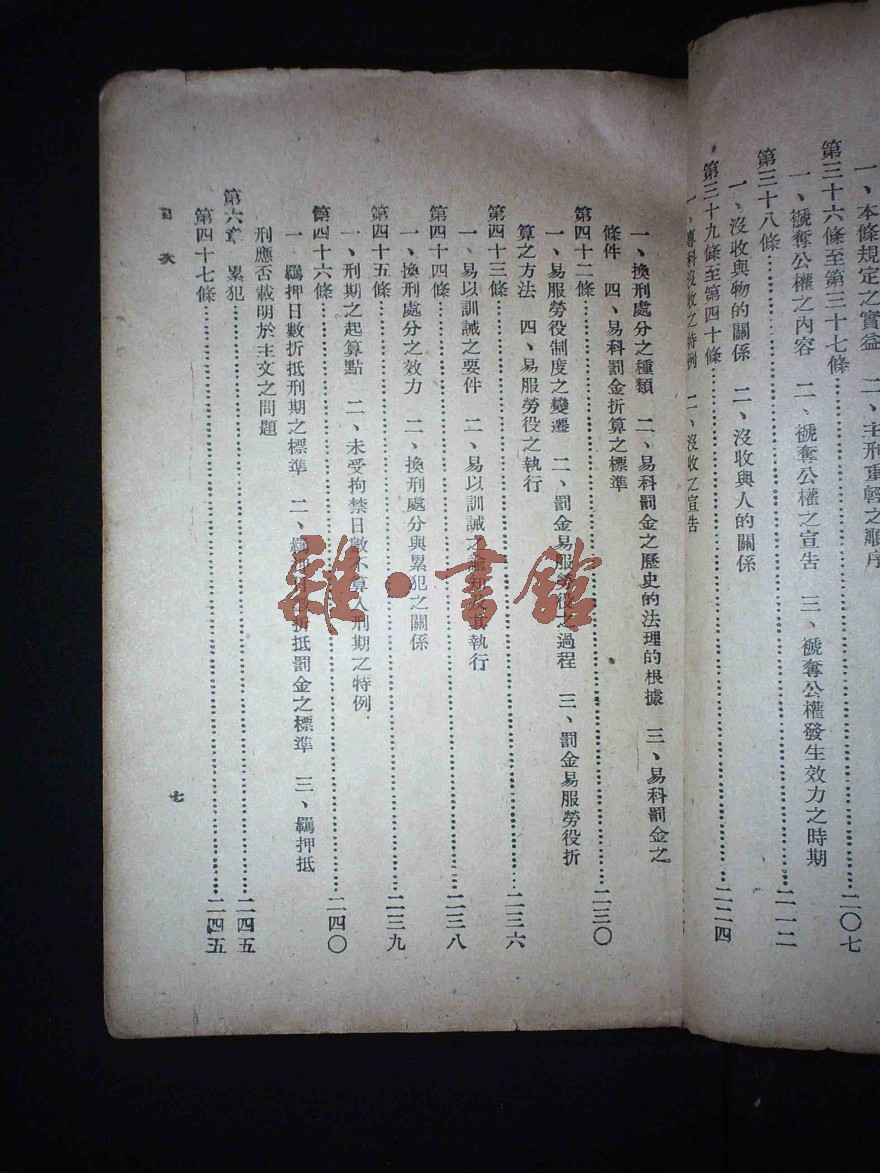 一、本條規定之實益　二、主刑重輕之順序
第三十六條至第三十七條……二〇七
一、褫奪公權之內容　二、褫奪公權之宣告　三、褫奪公權發生效力之時期
第三十八條……二一二
一、沒收與物的關係　二、沒收與人的關係
第三十九條至第四十條……二二四
一、專科沒收之特例　二、沒收之宣告
一、換刑處分之種類　二、易科罰金之歷史的法理的根據　三、易科罰金之
條件　四、易科罰金折算之標準
第四十二條……二三〇
一、易服勞役制度之變遷　二、罰金易服勞役之過程　三、罰金易服勞役折
算之方法　四、易服勞役之執行
第四十三條……二三六
一、易以訓誡之要件　二、易以訓誡之諭知及其執行
第四十四條……二三八
一、換刑處分之效力　二、換刑處分與累犯之關係
第四十五條……二三九
一、刑期之起算點　二、未受拘禁日數不算入刑期之特例
第四十六條……二四〇
一、羈押日數折抵刑期之標準　二、羈押日數折抵罰金之標準　三、羈押抵
刑應否載明於主文之問題
第六章　累犯……二四五
第四十七條……二四五
目次
七
雜·書館